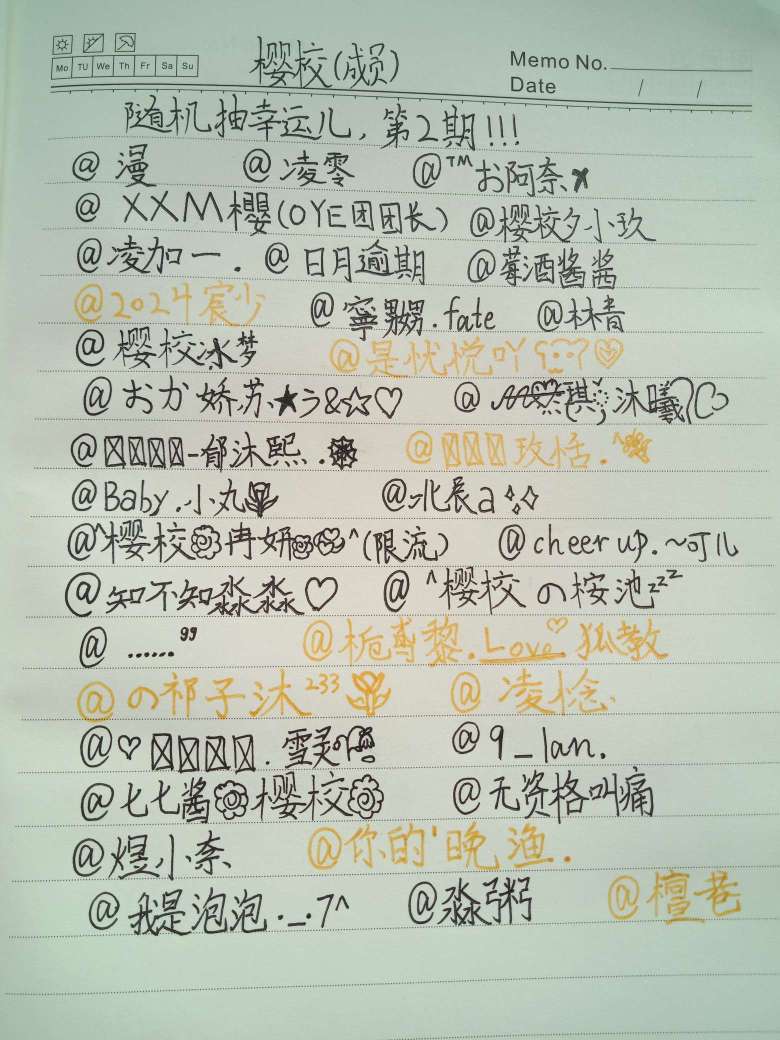 樱校(成员)
Memo No.
Mo TU We Th Fr Sa Su
Date / /
随机抽幸运儿，第2期!!!
@漫 @凌零 @™お阿奈
@XXM櫻(OYE团团长) @樱校夕小玖
@凌加一. @日月逾期 @莓酒酱酱
@2024宸少 @寧嬲嬲.fate @林青
@樱校冰梦 @是忧悦吖
@おか娇苏★う&☆♡ @琪 沐曦
@-郁沐熙. @玫恬.^
@Baby.小丸 @北辰a
@^樱校冉妍^(限流) @cheer up.~可儿
@知不知淼淼♡ @^樱校の桉池zzz
@ ......99 @栀鸢黎.Love♡狐教
@の祁子沐233 @凌惗.
@♡.雪灵 @9_lan.
@七七酱樱校 @无资格叫痛
@煜小奈 @你的'晚渔.
@我是泡泡._.7^ @淼粥 @檀巷